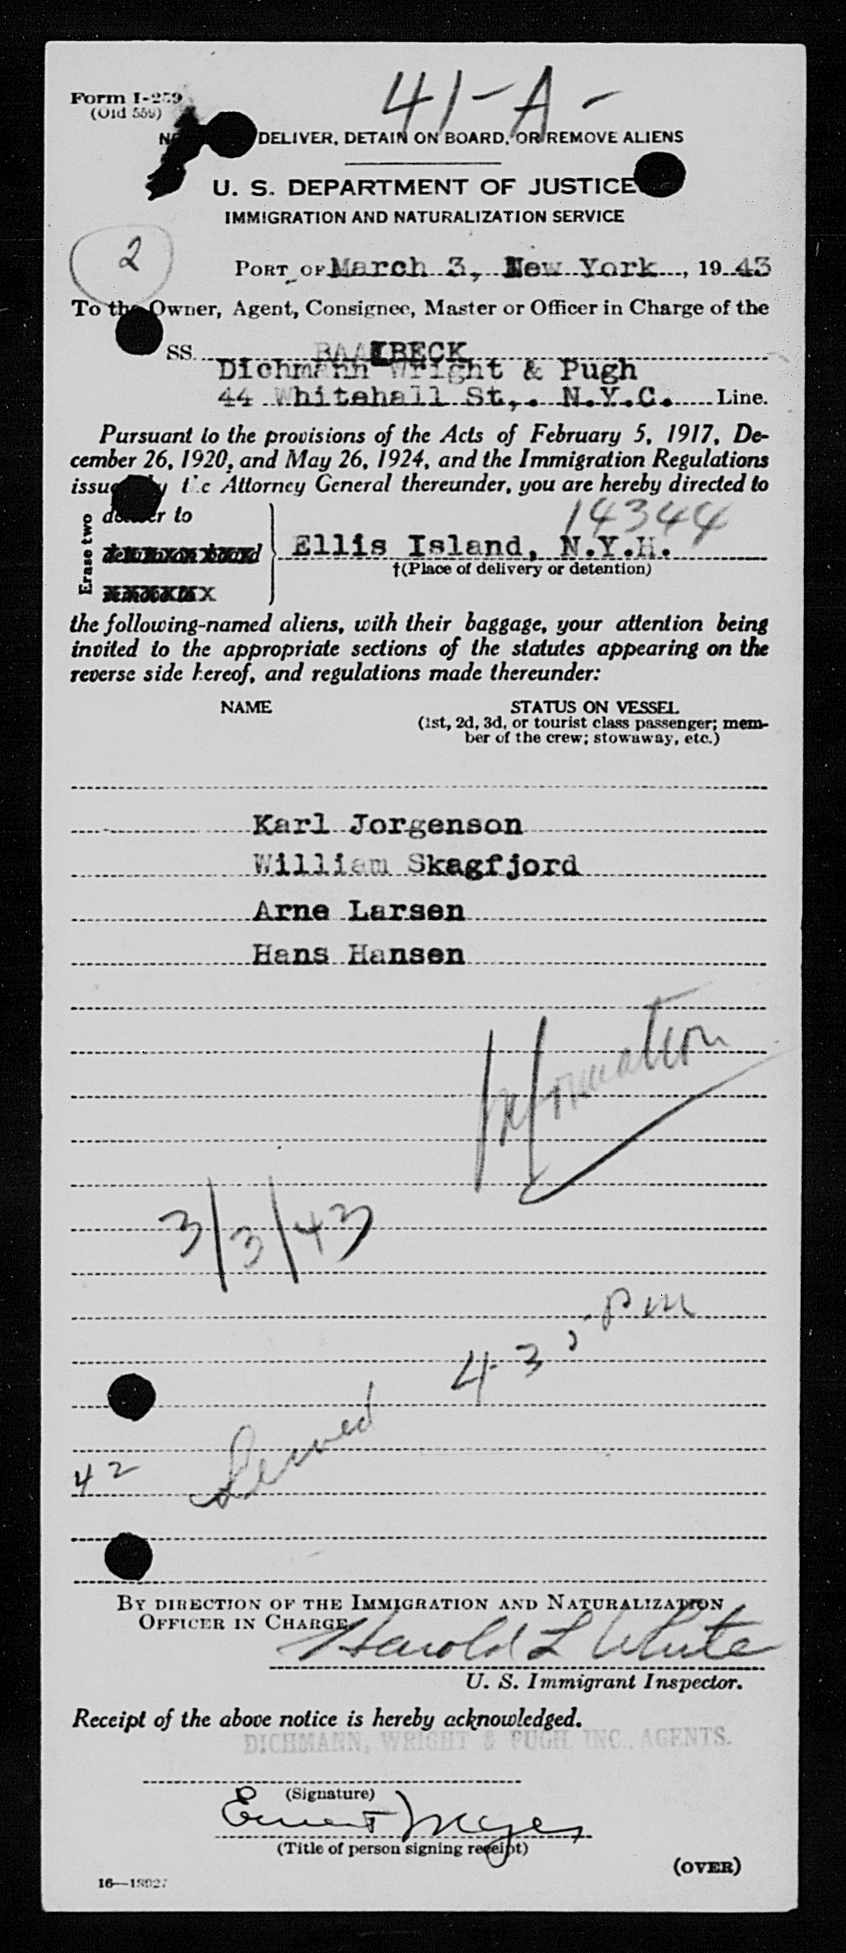 41-A-
Form I-259
(Old 559)
DELIVER, DETAIN ON BOARD, OR REMOVE ALIENS
U. S. DEPARTMENT OF JUSTICE
IMMIGRATION AND NATURALIZATION SERVICE
2
PORT OF March 3, New York, 1943
To the Owner, Agent, Consignee, Master or Officer in Charge of the
SS. BAALBECK
Dichmann Wright & Pugh
44 Whitehall St,. N.Y.C. Line.
Pursuant to the provisions of the Acts of February 5, 1917, De-
cember 26, 1920, and May 26, 1924, and the Immigration Regulations
issued by the Attorney General thereunder, you are hereby directed to
14344
Erase two
deliver to
Ellis Island, N.Y.H.
†(Place of delivery or detention)
the following-named aliens, with their baggage, your attention being
invited to the appropriate sections of the statutes appearing on the
reverse side hereof, and regulations made thereunder:
NAME STATUS ON VESSEL
(1st, 2d, 3d, or tourist class passenger; mem-
ber of the crew; stowaway, etc.)
Karl Jorgenson
William Skagfjord
Arne Larsen
Hans Hansen
Information
3/3/43
435 PM
Served
42
BY DIRECTION OF THE IMMIGRATION AND NATURALIZATION
OFFICER IN CHARGE
Harold L White
U. S. Immigrant Inspector.
Receipt of the above notice is hereby acknowledged.
DICHMANN, WRIGHT & PUGH INC., AGENTS.
(Signature)
Ernest Meyer
(Title of person signing receipt)
(OVER)